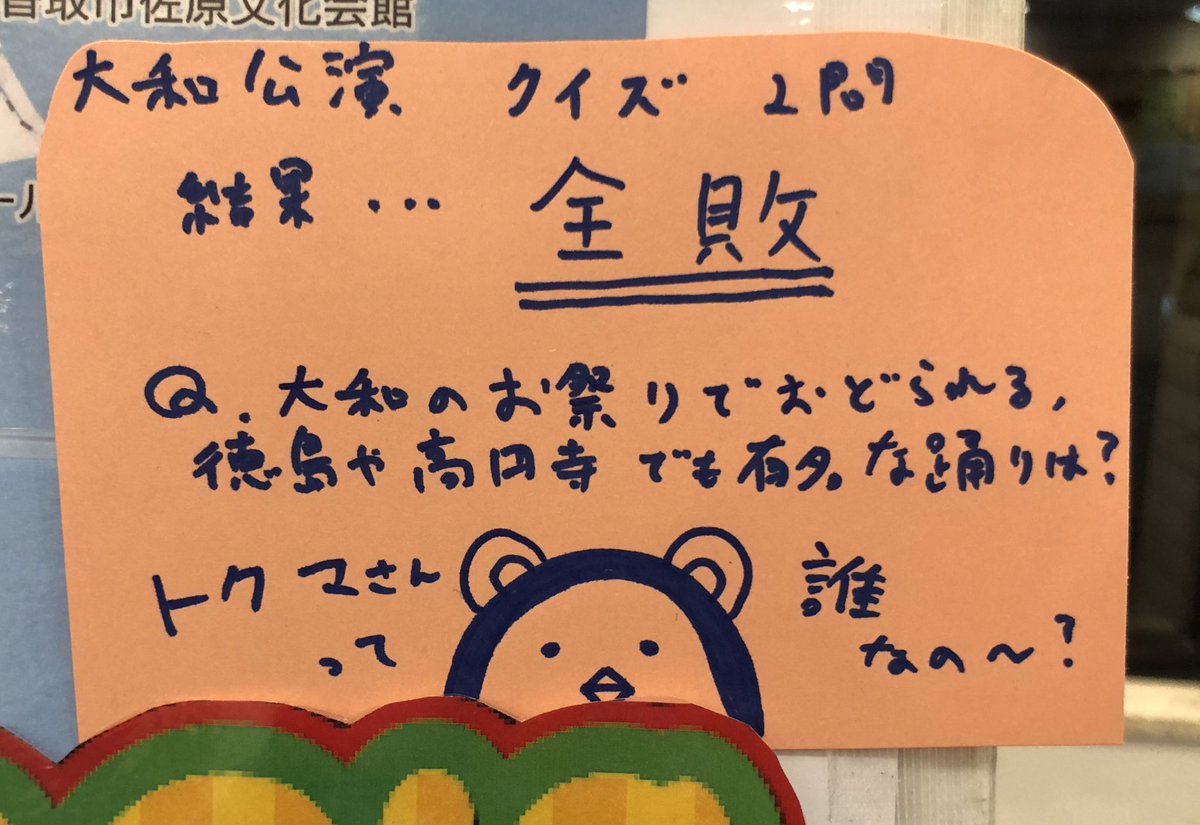 香取市佐原文化会館
大和公演 クイズ 2問
結果… 全敗
Q.大和のお祭りでおどられる,
徳島や高円寺でも有名な踊りは?
トクマさん
って
誰
なの〜?